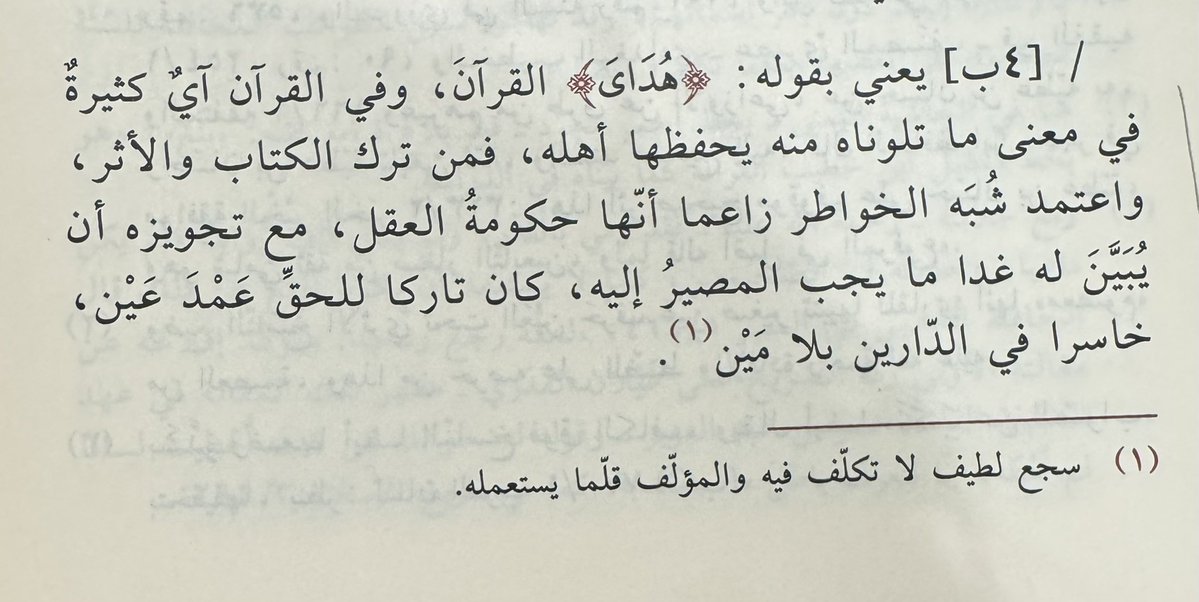 / [٤ب] يعني بقوله: ﴿هُدَاىَ﴾ القرآنَ، وفي القرآن آيٌ كثيرةٌ
في معنى ما تلوناه منه يحفظها أهله، فمن ترك الكتاب والأثر،
واعتمد شُبَه الخواطر زاعما أنّها حكومةُ العقل، مع تجويزه أن
يُبَيَّنَ له غدا ما يجب المصيرُ إليه، كان تاركا للحقِّ عَمْدَ عَيْن،
خاسرا في الدّارين بلا مَيْن(١).
(١) سجع لطيف لا تكلّف فيه والمؤلّف قلّما يستعمله.